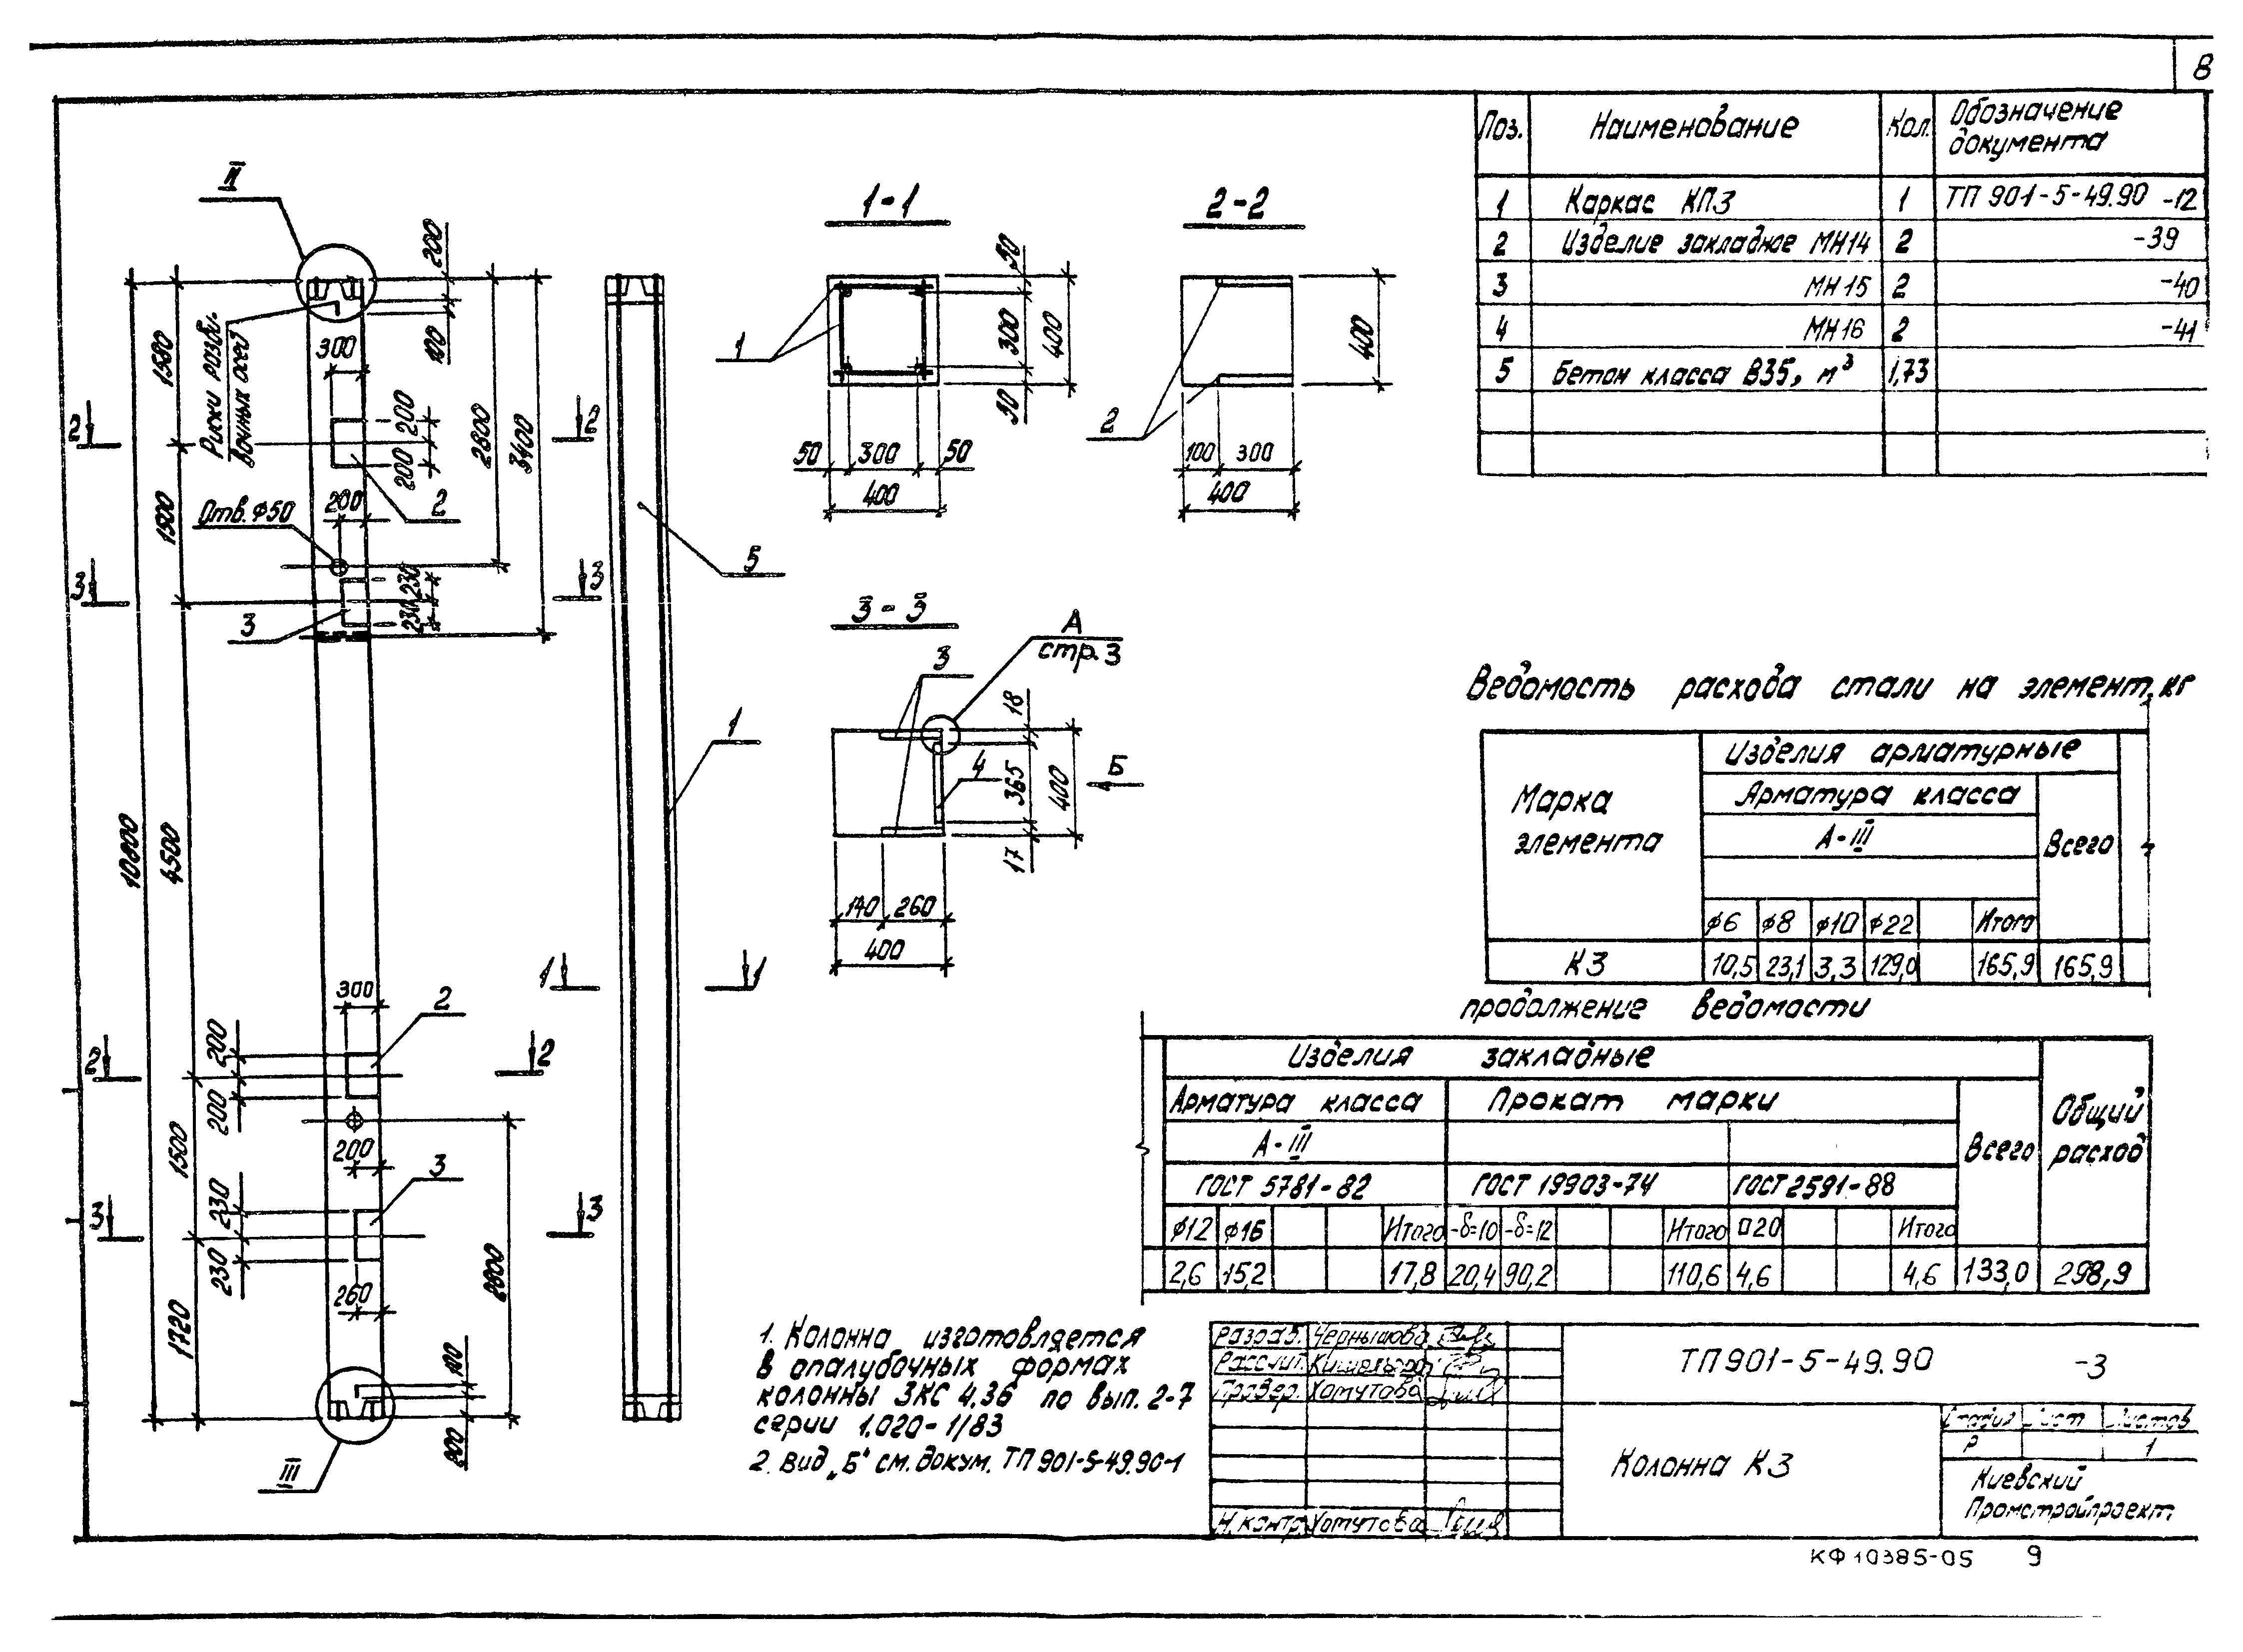 8
Поз. Наименование Кол. Обозначение документа
1 Каркас КП3 1 ТП 901-5-49.90 -12
2 Изделие закладное МН14 2 -39
3 МН15 2 -40
4 МН16 2 -41
5 Бетон класса В35, м³ 1,73
II
200
100
300
Риски разби-
вочных осей
1580
2800
3400
10800
2 2
200
200
200 2
Отв. ⌀50
1500
3 3
230
230
3
4500
5
1
1 1
300 2
200
200
2 2
200
1500
3
230
230
3 3
260
2800
1720
100
200
III
1-1
1
50
300
400
50
50 300 50
400
2-2
2
400
100 300
400
3-3
А
стр. 3
3
18
4
365
400
Б
17
140 260
400
Ведомость расхода стали на элемент, кг
Марка элемента
Изделия арматурные
Арматура класса
А-III
Всего
⌀6 ⌀8 ⌀10 ⌀22 Итого
К3 10,5 23,1 3,3 129,0 165,9 165,9
продолжение ведомости
Изделия закладные
Арматура класса Прокат марки
А-III
Всего
Общий расход
ГОСТ 5781-82 ГОСТ 19903-74 ГОСТ 2591-88
⌀12 ⌀16 Итого -δ=10 -δ=12 Итого □20 Итого
2,6 15,2 17,8 20,4 90,2 110,6 4,6 4,6 133,0 298,9
1. Колонна изготовляется
в опалубочных формах
колонны 3КС 4.36 по вып. 2-7
серии 1.020-1/83
2. Вид „Б" см. докум. ТП 901-5-49.90-1
Разраб. Чернышова
Рассчит.
Провер. Хомутова
Н.контр. Хомутова
ТП 901-5-49.90 -3
Колонна К3
Стадия Лист Листов
Р 1
Киевский
Промстройпроект
КФ 10385-05 9